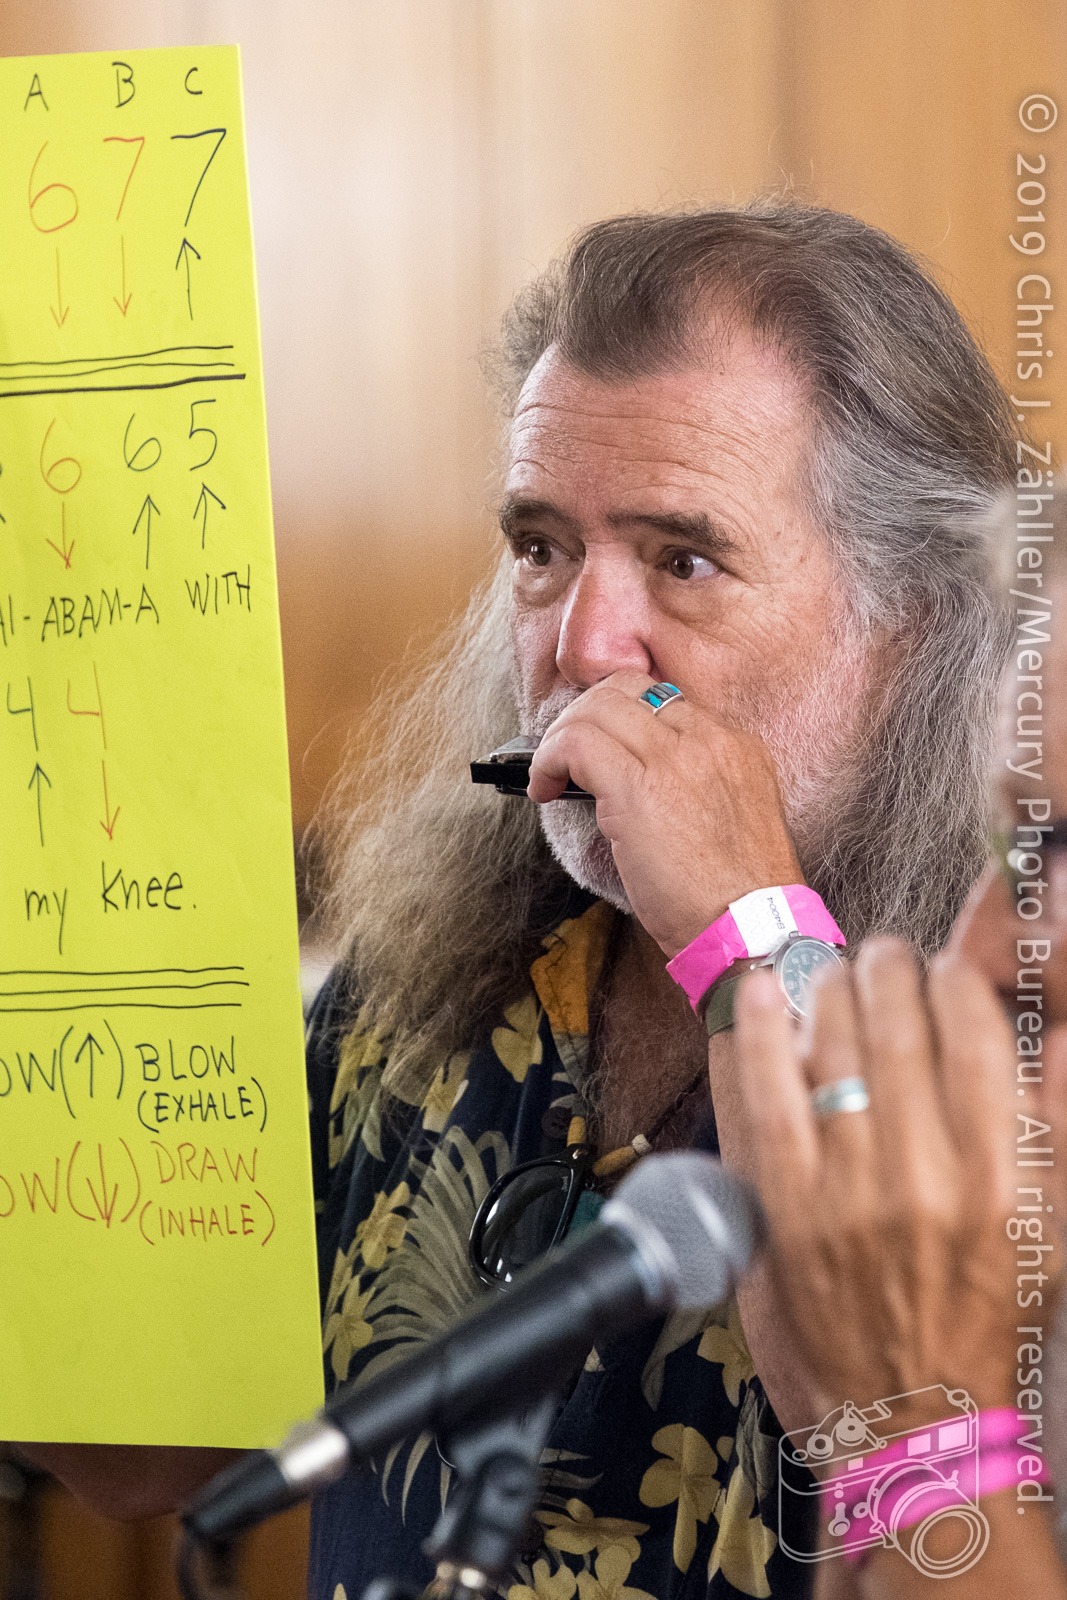 A B C
6 7 7
↓ ↓ ↑
6 6 5
↓ ↑ ↑
AI-ABAM-A WITH
4 4
↑ ↓
my Knee.
OW(↑) BLOW
(EXHALE)
OW(↓) DRAW
(INHALE)
94004
© 2019 Chris J. Zähller/Mercury Photo Bureau. All rights reserved.